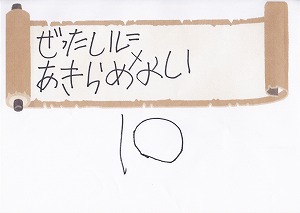 ぜったいに
あきらめない
10